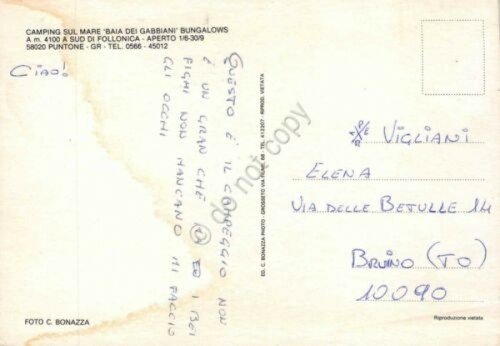 CAMPING SUL MARE 'BAIA DEI GABBIANI' BUNGALOWS
A m. 4100 A SUD DI FOLLONICA - APERTO 1/6-30/9
58020 PUNTONE - GR - TEL. 0566 - 45012
CIAO!
QUESTO È IL CAMPEGGIO NON
È UN GRAN CHÈ I BEI
FIGHI NON MANCANO MI FACCIO
GLI OCCHI
ED. C. BONAZZA PHOTO - GROSSETO VIA FIUME, 68 - TEL. 412207 - RIPROD. VIETATA
VIGLIANI
ELENA
VIA DELLE BETULLE 14
BRUINO (TO)
10090
FOTO C. BONAZZA
Riproduzione vietata
do not copy